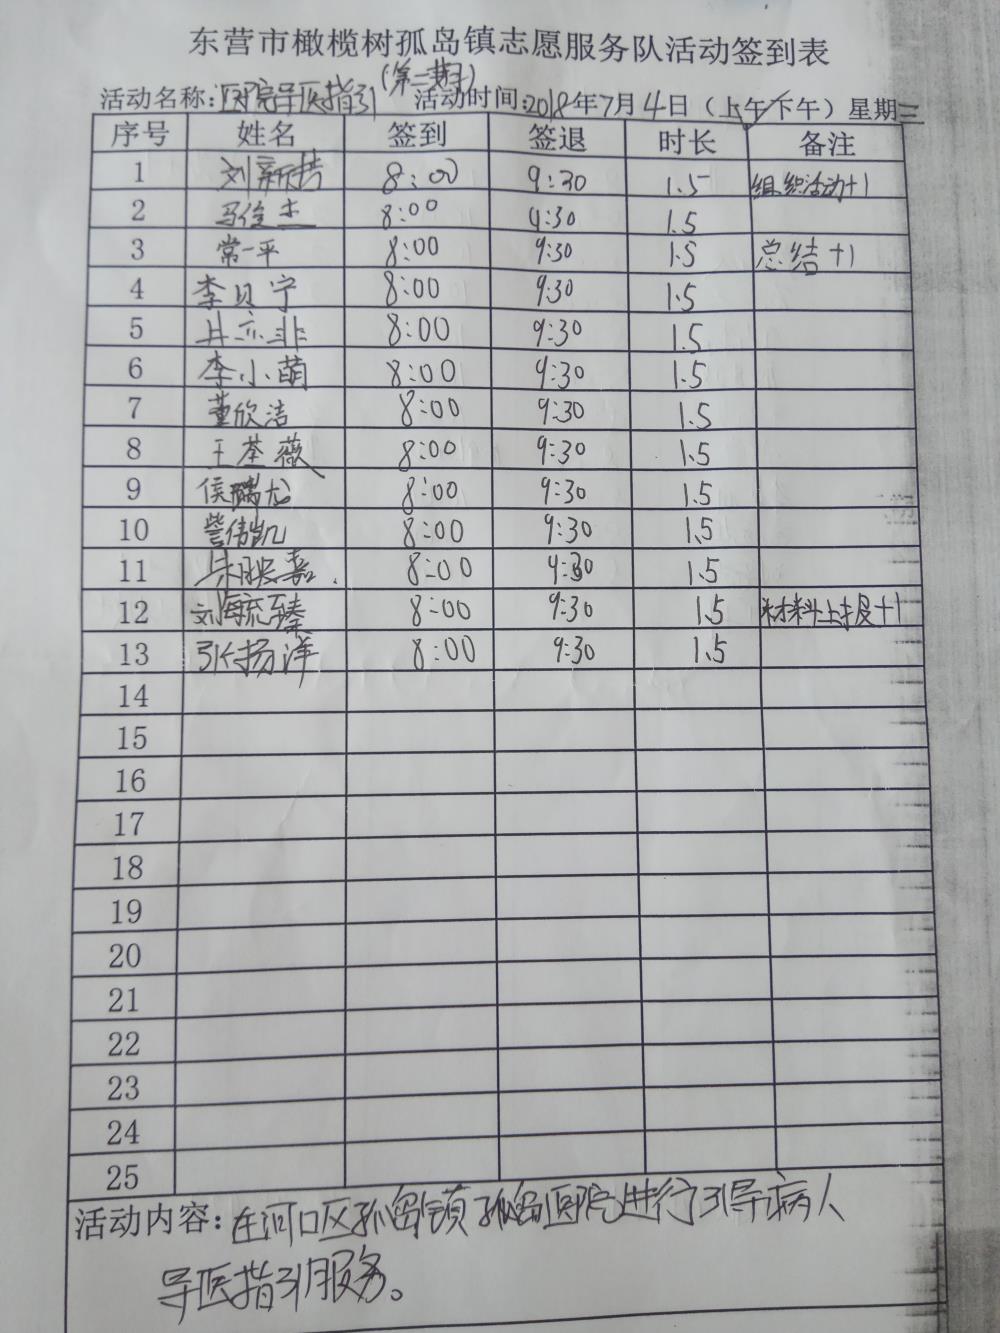 东营市橄榄树孤岛镇志愿服务队活动签到表
(第二期)
活动名称:医院导医指引 活动时间:2018年7月4日(上午/下午)星期三
序号 姓名 签到 签退 时长 备注
1 刘新芳 8:00 9:30 1.5 组织活动+1
2 马俊杰 8:00 9:30 1.5
3 常一平 8:00 9:30 1.5 总结+1
4 李贝宁 8:00 9:30 1.5
5 8:00 9:30 1.5
6 李小萌 8:00 9:30 1.5
7 董欣洁 8:00 9:30 1.5
8 王荃薇 8:00 9:30 1.5
9 侯瑞龙 8:00 9:30 1.5
10 訾伟凯 8:00 9:30 1.5
11 8:00 9:30 1.5
12 刘海毓臻 8:00 9:30 1.5 材料上报+1
13 张扬洋 8:00 9:30 1.5
14
15
16
17
18
19
20
21
22
23
24
25
活动内容:在河口区孤岛镇孤岛医院进行引导病人
导医指引服务。